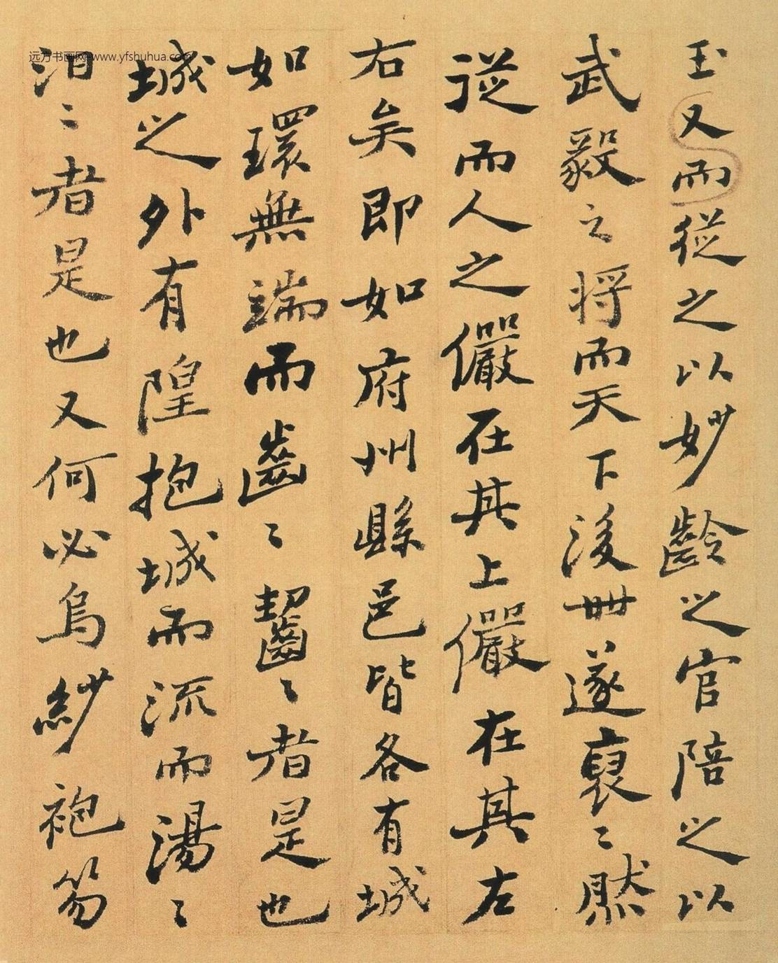 远方书画网 www.yfshuhua.com
玉又而從之以妙齡之官陪之以
武毅之將而天下後世遂裒〻然
從而人之儼在其上儼在其左
右矣即如府州縣邑皆各有城
如環無端而齒〻齧〻者是也
城之外有隍抱城而流而湯〻
汩〻者是也又何必烏紗袍笏